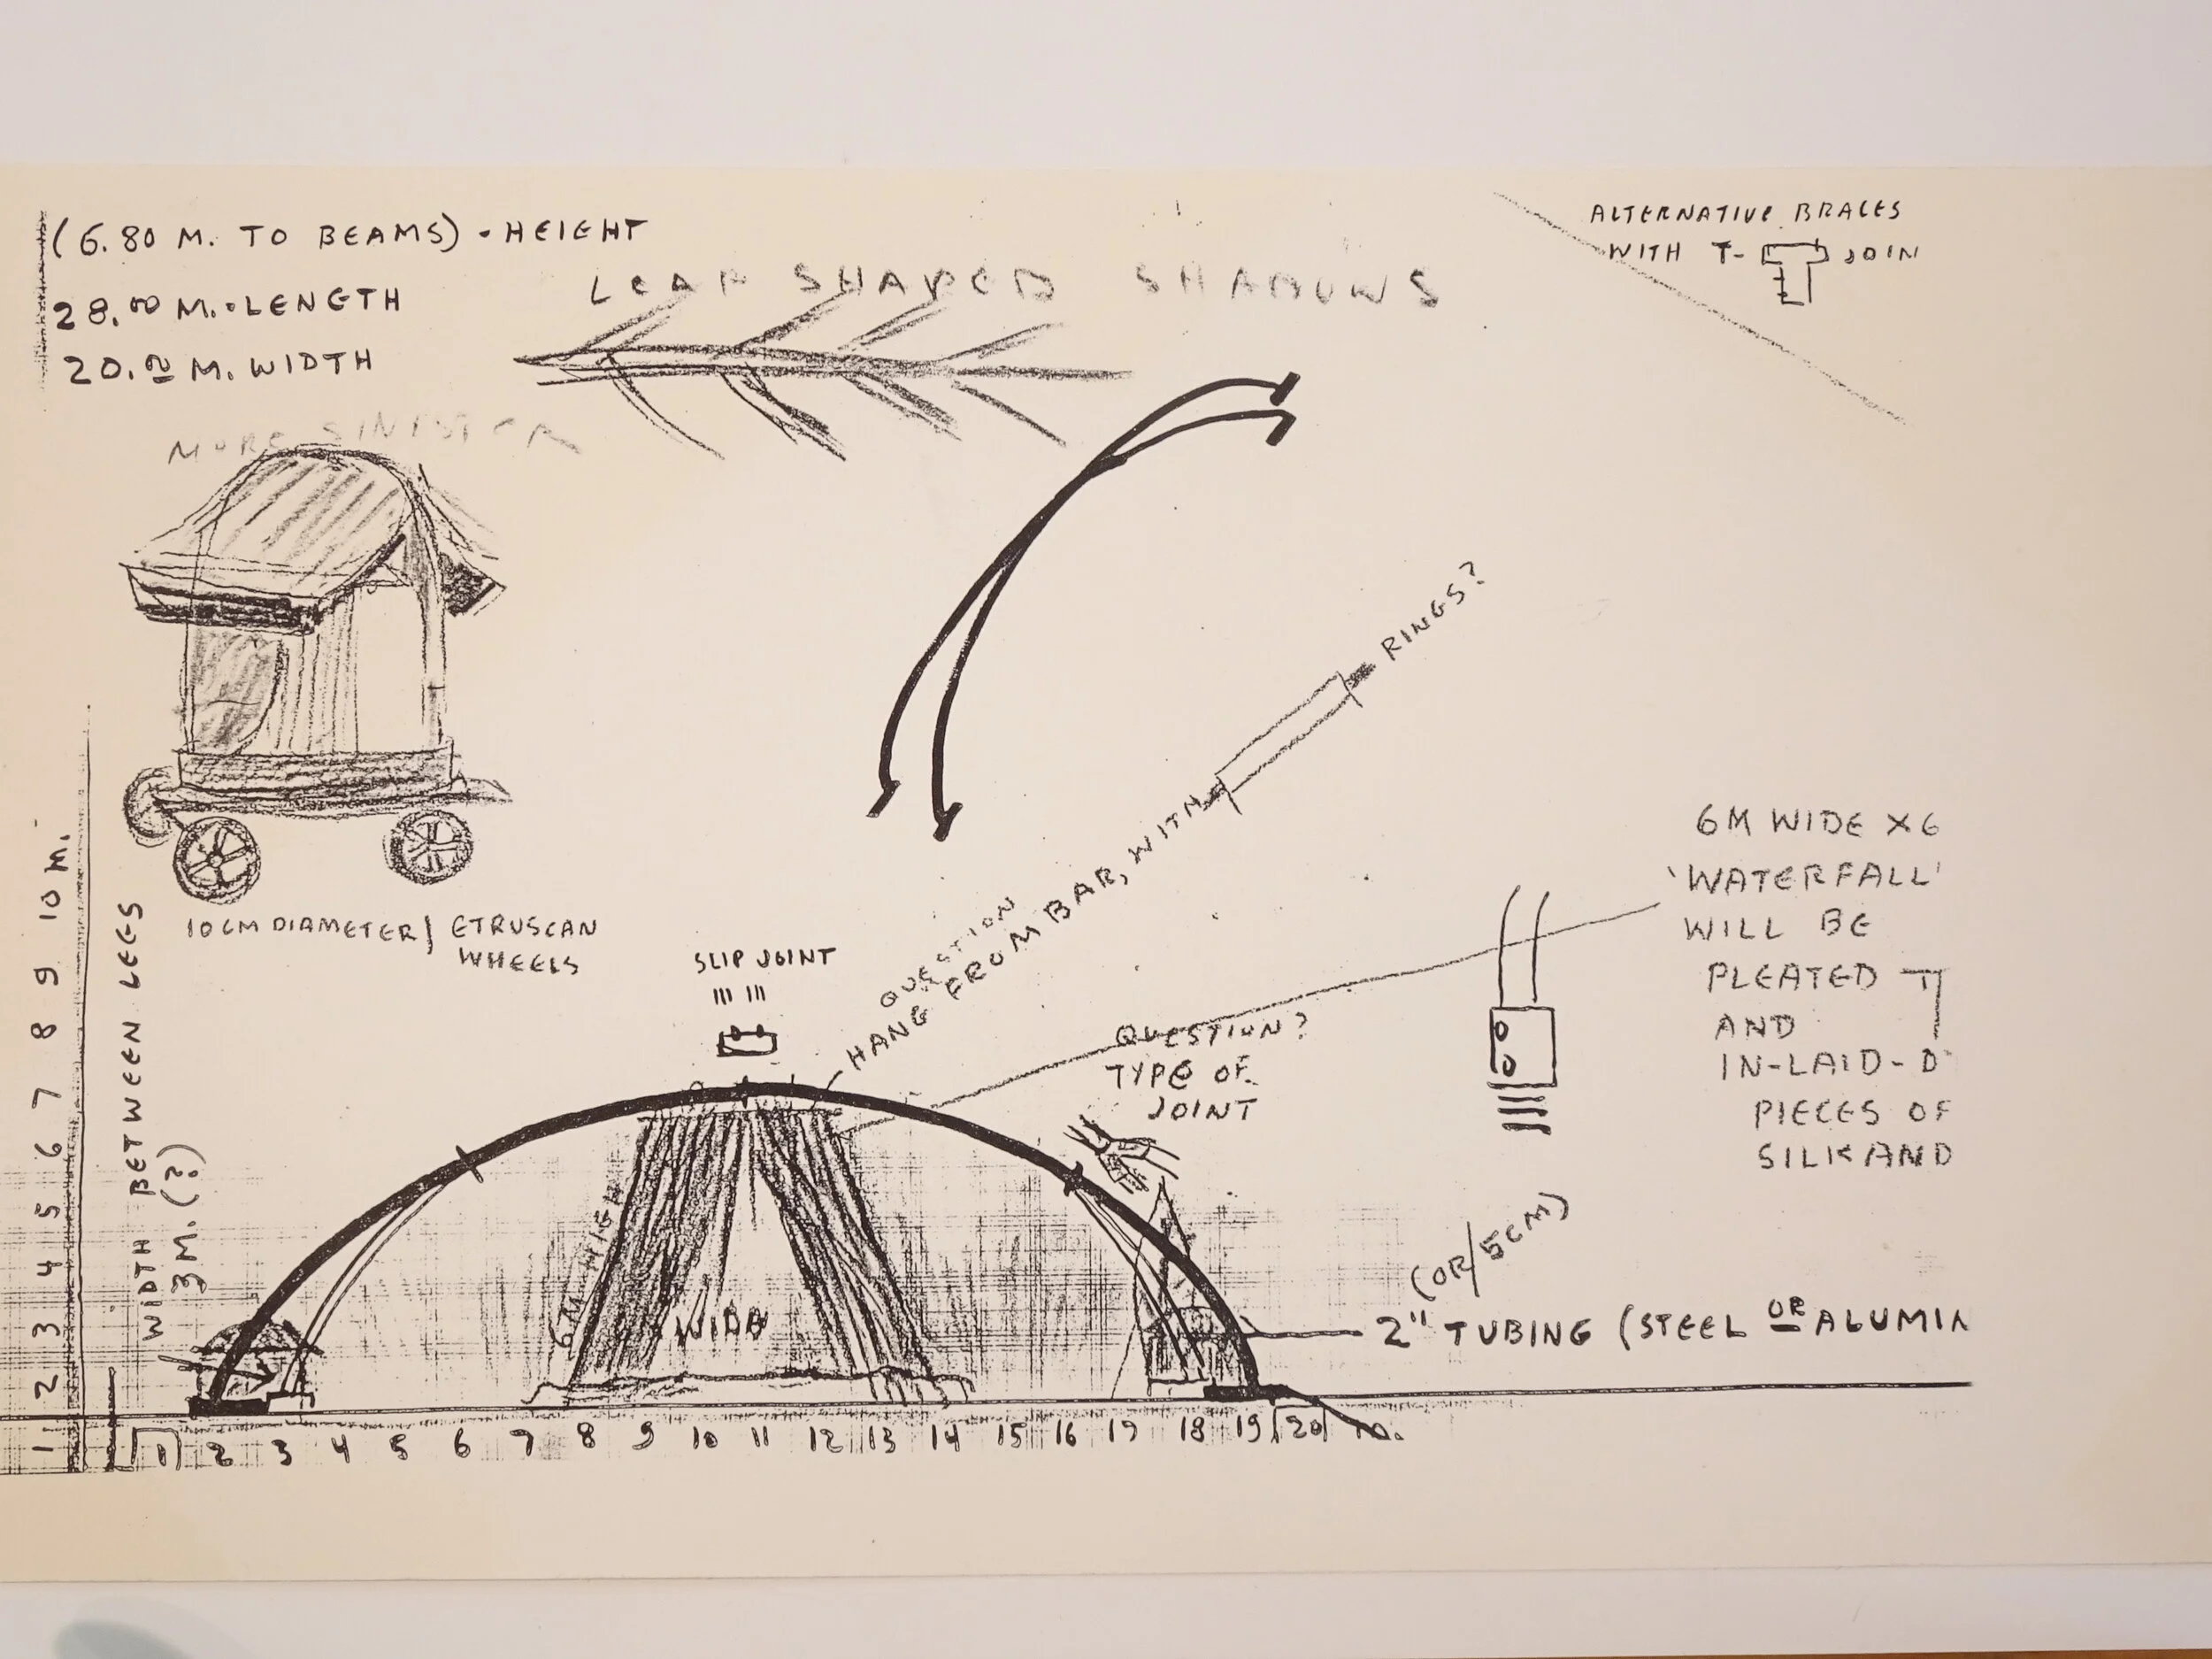 (6.80 M. TO BEAMS) • HEIGHT
28.00 M. • LENGTH
20.00 M. WIDTH
LEAF SHAPED SHADOWS
ALTERNATIVE BRACES
WITH T- JOIN
MORE SINISTER
10 CM DIAMETER / ETRUSCAN
WHEELS
RINGS?
QUESTION
HANG FROM BAR, WITH
SLIP JOINT
QUESTION?
TYPE OF
JOINT
6M WIDE X 6
'WATERFALL'
WILL BE
PLEATED
AND
IN-LAID-D
PIECES OF
SILK AND
(OR/5CM)
2" TUBING (STEEL OR ALUMIN
WIDTH BETWEEN LEGS
3 M. (?)
6M HIGH
WIDE
1 2 3 4 5 6 7 8 9 10 M.
1 2 3 4 5 6 7 8 9 10 11 12 13 14 15 16 17 18 19 20 M.